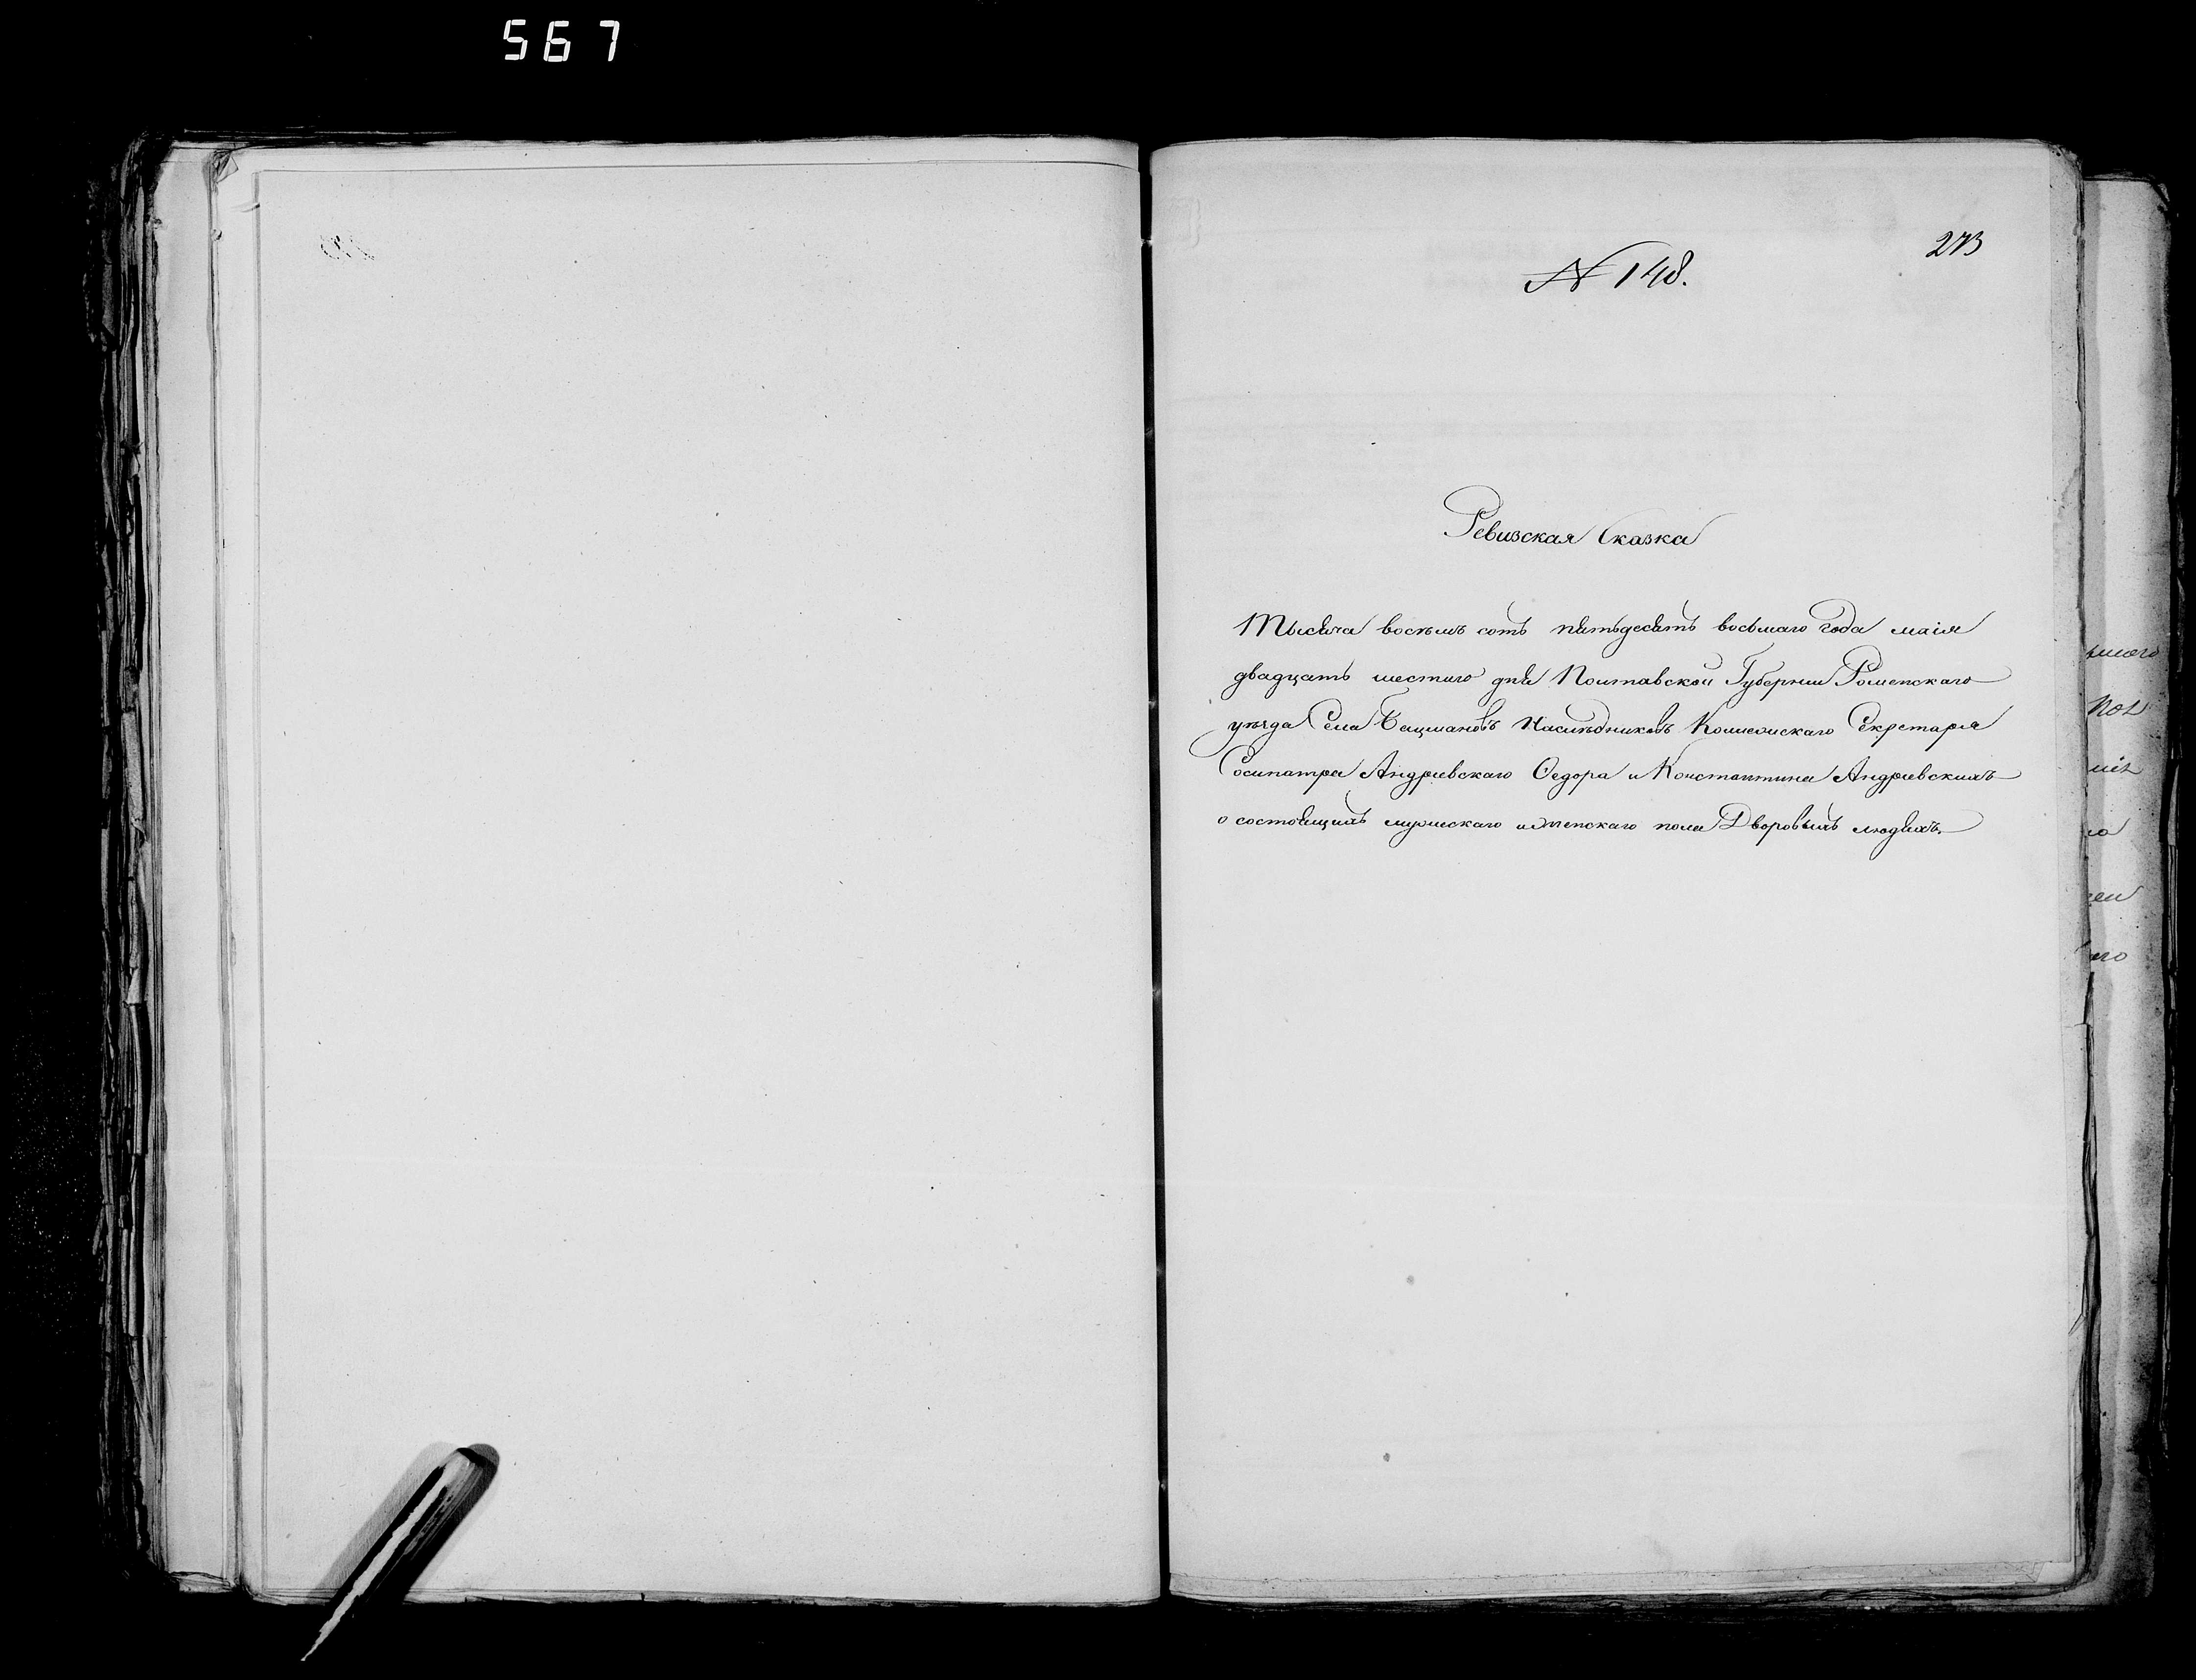 567
273
№ 148.
Ревизская Сказка
Тысяча восемь сотъ пятьдесятъ восьмаго года маія
двадцать шестаго дня Полтавской Губерніи Роменскаго
уѣзда Села Бацмановъ Наслѣдниковъ Коллежскаго Секретаря
Сосипатра Андріевскаго Ѳедора и Константина Андріевскихъ
о состоящихъ мужескаго и женскаго пола Дворовыхъ людяхъ.